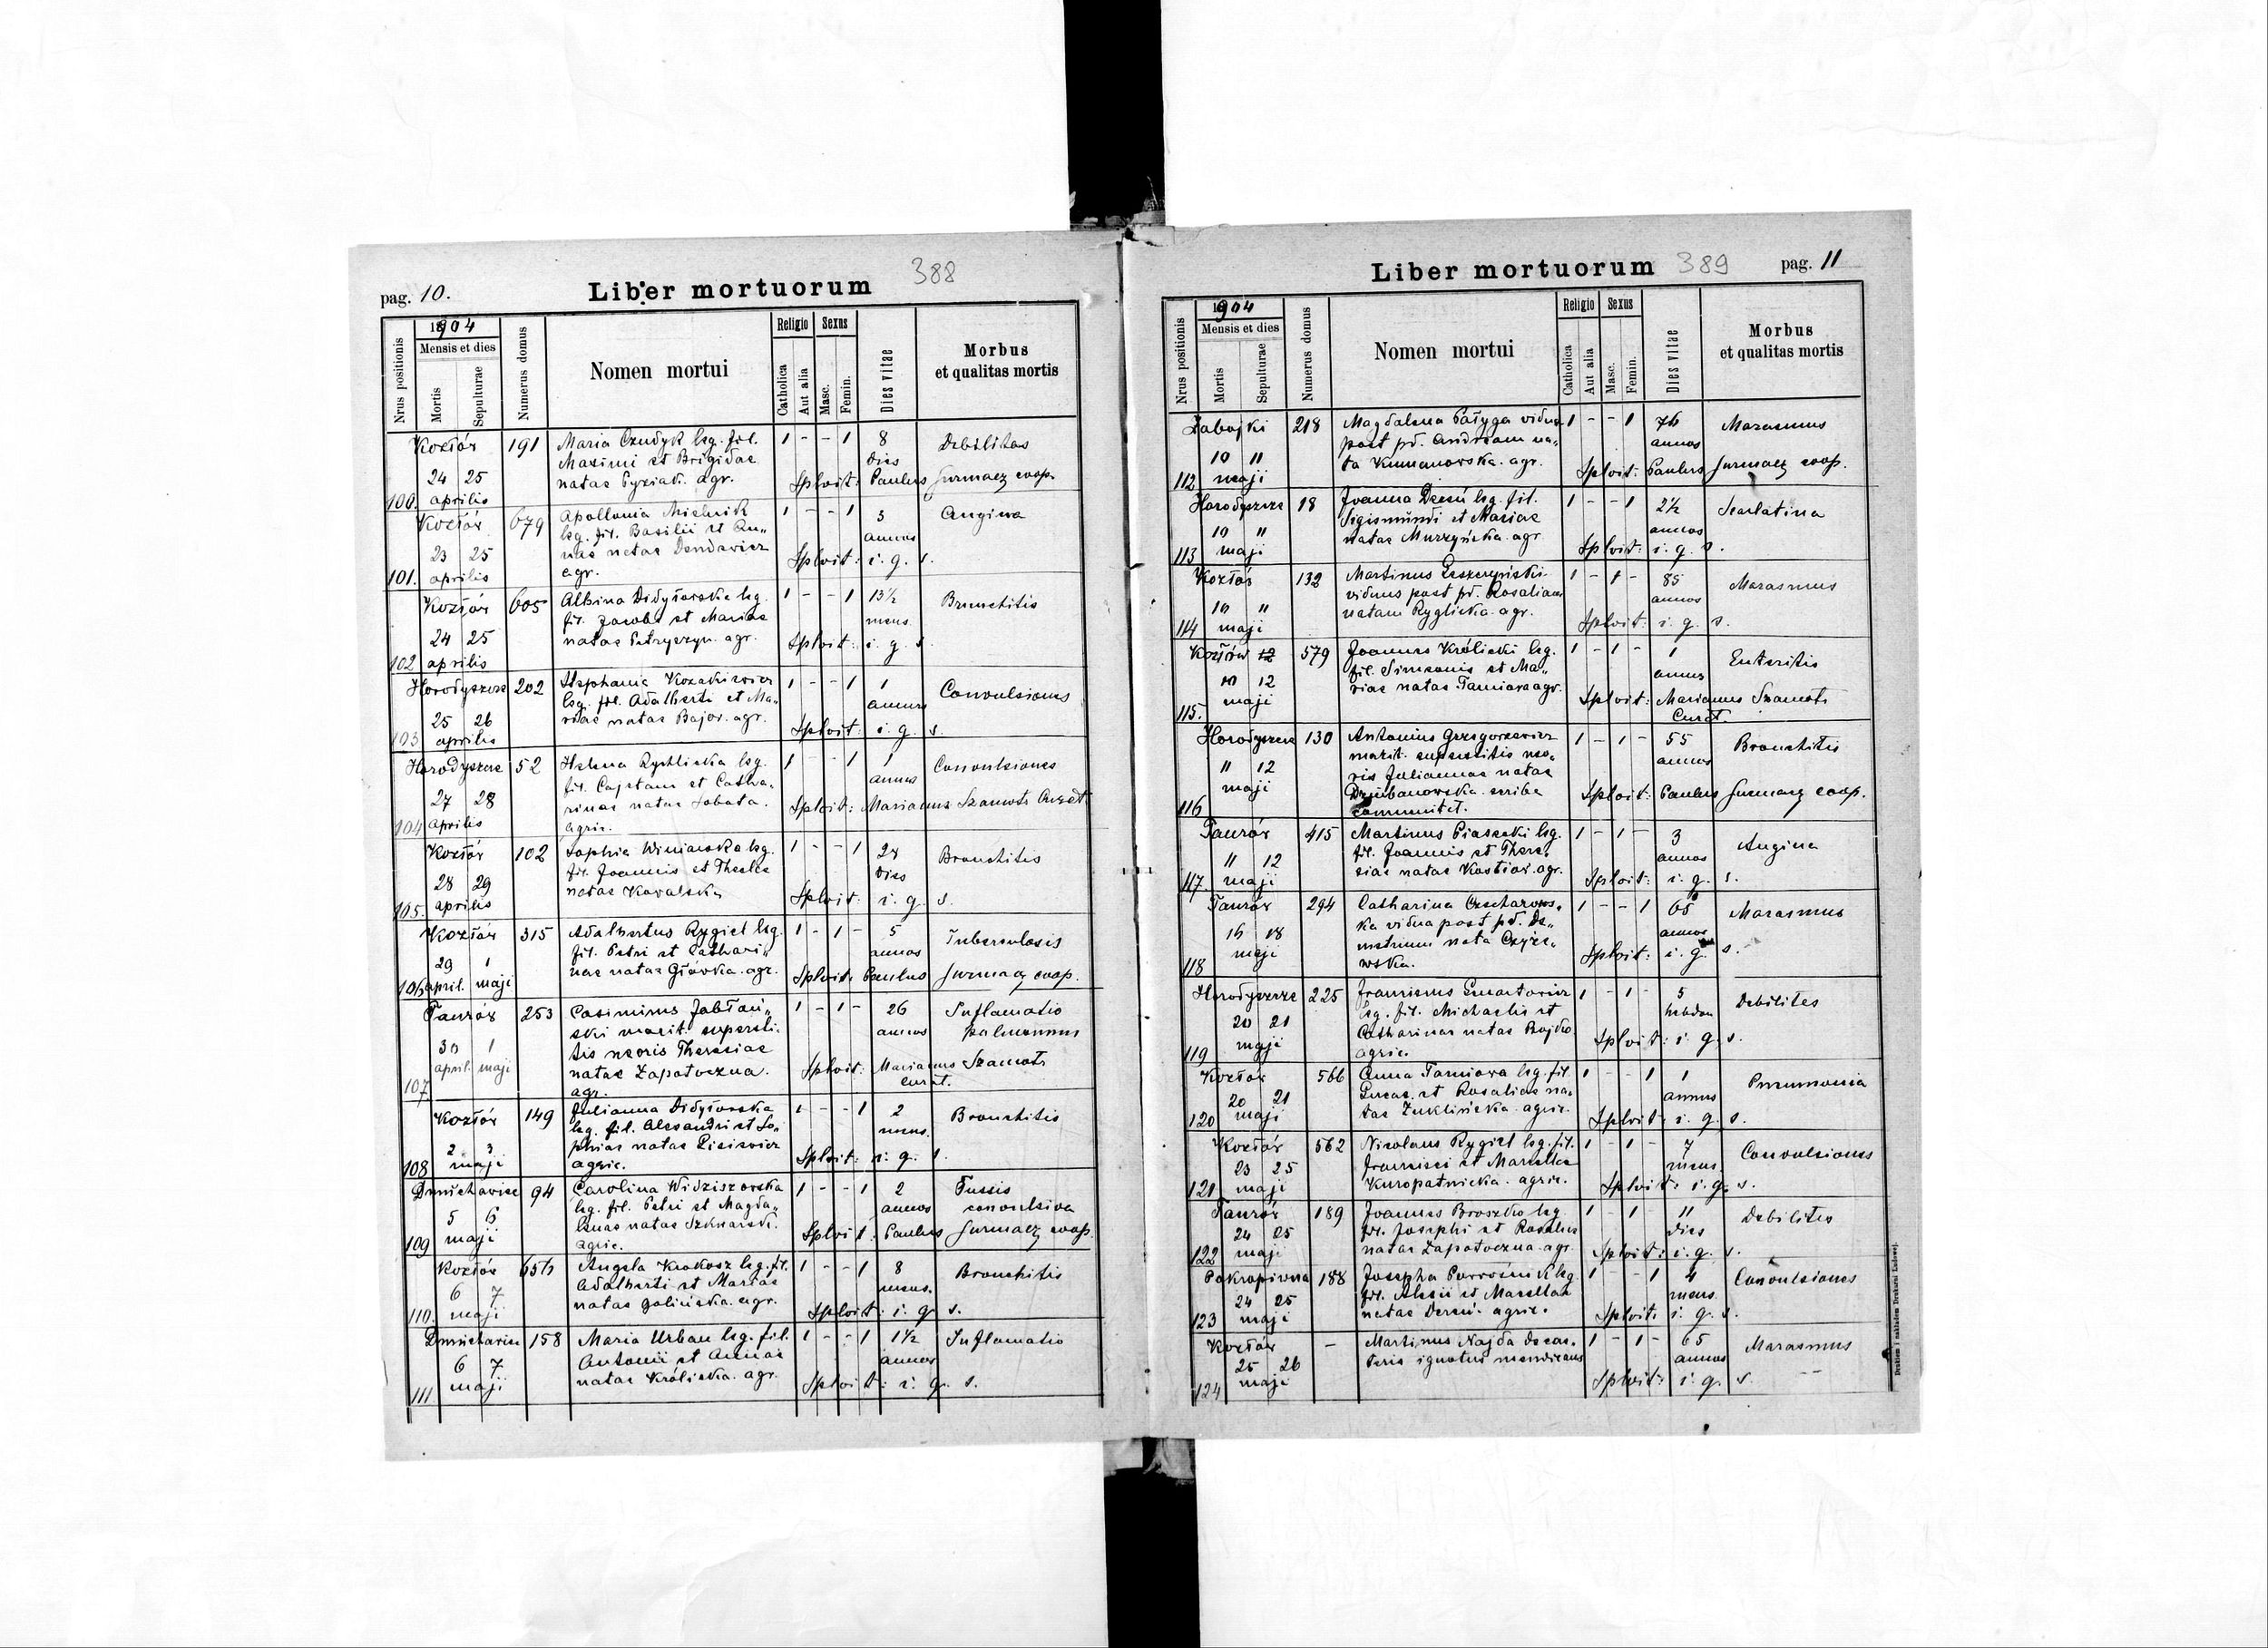 pag. 10.
Liber mortuorum
388
1904
Nrus positionis
Mensis et dies
Mortis
Sepulturae
Numerus domus
Nomen mortui
Religio
Sexus
Catholica
Aut alia
Masc.
Femin.
Dies vitae
Morbus
et qualitas mortis
Kozłów 191 Maria Czudyk leg. fil. 1 - - 1 8 Debilitas
Maximi et Brigidae dies
24 25 natae agr. Splvit: Paulus Gurmacz coop.
100. aprilis
Kozłów 679 Apollonia Mielnik 1 - - 1 3 Angina
leg. fil. Basilii et An„ annos
23 25 nae natae Dendewicz Splvit: i. g. s.
101. aprilis agr.
Kozłów 605 Albina Didyłowska leg. 1 - - 1 13½ Brunchitis
fil. Jacobi et Mariae mens.
24 25 natae Petryszyn. agr. Splvit: i. g. s.
102 aprilis
Horodyszcze 202 Stephania Kozakiewicz 1 - - 1 1 Convulsiones
leg. fil. Adalberti et Ma„ annus
25 26 riae natae Bajor. agr. Splvit: i. g. s.
103 aprilis
Horodyszcze 52 Helena Rychlicka leg. 1 - - 1 1 Convulsiones
fil. Cajetani et Catha„ annus
27 28 rinae natae Sobota. Splvit: Marianus Szamota Curat.
104 aprilis agric.
Kozłów 102 Sophia Winiarska leg. 1 - - 1 28 Bronchitis
fil. Joannis et Theclae dies
28 29 natae Kowalska Splvit: i. g. s.
105. aprilis
Kozłów 315 Adalbertus Rygiel leg. 1 - 1 - 5 Tuberculosis
fil. Petri et Cathari„ annos
29 1 nae natae Główka. agr. Splvit: Paulus Gurmacz coop.
106 april. maji
Taurów 253 Casimirus Jabłoń„ 1 - 1 - 26 Inflamatio
ski marit. supersti„ annos pulmonum
30 1 tis uxoris Theresiae
april. maji natae Zapotoczna. Splvit: Marianus Szamota
107 agr. curat.
Kozłów 149 Julianna Didyłowska 1 - - 1 2 Bronchitis
leg. fil. Alexandri et So„ mens.
2 3 phiae natae Lisiewicz Splvit: i. g. s.
108 maji agric.
94 Carolina Widziszowska 1 - - 1 2 Tussis
leg. fil. Petri et Magda„ annos convulsiva
5 6 lenae natae Splvit: Paulus Gurmacz coop.
109 maji agric.
Kozłów Angela Krokosz leg. fil. 1 - - 1 8 Bronchitis
Adalberti et Mariae mens.
6 7 natae Golińska. agr. Splvit: i. g. s.
110. maji
158 Maria Urban leg. fil. 1 - - 1 1½ Inflamatio
Antonii et Annae annos
6 7 natae Królicka. agr. Splvit: i. g. s.
111 maji
Liber mortuorum
389
pag. 11
1904
Nrus positionis
Mensis et dies
Mortis
Sepulturae
Numerus domus
Nomen mortui
Religio
Sexus
Catholica
Aut alia
Masc.
Femin.
Dies vitae
Morbus
et qualitas mortis
Zabojki 218 Magdalena Pałyga vidua 1 - - 1 76 Marasmus
post pd. Andream na„ annos
10 11 ta Kumanowska. agr. Splvit: Paulus Gurmacz coop.
112 maji
Horodyszcze 18 Joanna Dereń leg. fil. 1 - - 1 2½ Scarlatina
Sigismundi et Mariae annos
10 11 natae Murzyńska. agr Splvit: i. g. s.
113 maji
Kozłów 132 Martinus Leszczyński 1 - 1 - 85 Marasmus
viduus post pd. Rosaliam annos
10 11 natam Ryglicka. agr. Splvit: i. g. s.
114 maji
Kozłów 12 579 Joannes Królicki leg. 1 - 1 - 1 Enteritis
fil. Simeonis et Ma„ annus
10 12 riae natae Tarniowa agr. Splvit: Marianus Szamota
115. maji Curat.
Horodyszcze 130 Antonius Grzegorzewicz 1 - 1 - 55 Bronchitis
marit. superstitis uxo„ annos
11 12 ris Juliannae natae
maji Dziubanowska scriba Splvit: Paulus Gurmacz coop.
116 communitat.
Taurów 415 Martinus Piasecki leg. 1 - 1 - 3 Angina
fil. Joannis et There„ annos
11 12 siae natae Kostiów. agr. Splvit: i. g. s.
117. maji
Taurów 294 Catharina 1 - - 1 Marasmus
ka vidua post pd. De„ annos
16 18 metrium nata Czyże„ Splvit: i. g. s.
118 maji wska.
Horodyszcze 225 Franciscus 1 - 1 - 5 Debilitas
leg. fil. Michaelis et hebdom
20 21 Catharinae natae Bojko Splvit: i. g. s.
119 maji agric.
Kozłów 566 Anna Tarniowa leg. fil. 1 - - 1 1 Pneumonia
Lucae et Rosaliae na„ annus
20 21 tae Zuklińska. agric. Splvit: i. g. s.
120 maji
Kozłów 562 Nicolaus Rygiel leg. fil. 1 - 1 - 7 Convulsiones
Francisci et Marcellae mens.
23 25 Kuropatnicka. agric. Splvit: i. g. s.
121 maji
Taurów 189 Joannes Broszko leg. 1 - 1 - 11 Debilitas
fil. Josephi et Rosaliae dies
24 25 natae Zapotoczna. agr. Splvit: i. g. s.
122 maji
Pokropiwna 188 Josepha leg. 1 - - 1 4 Convulsiones
fil. Alexii et Marcellae mens.
24 25 natae Dereń. agric. Splvit: i. g. s.
123 maji
Kozłów - Martinus Najda de cae„ 1 - 1 - 65 Marasmus
25 26 teris ignotus mendicans annos
124 maji Splvit: i. g. s.
Drukiem i nakładem Drukarni Ludowej.